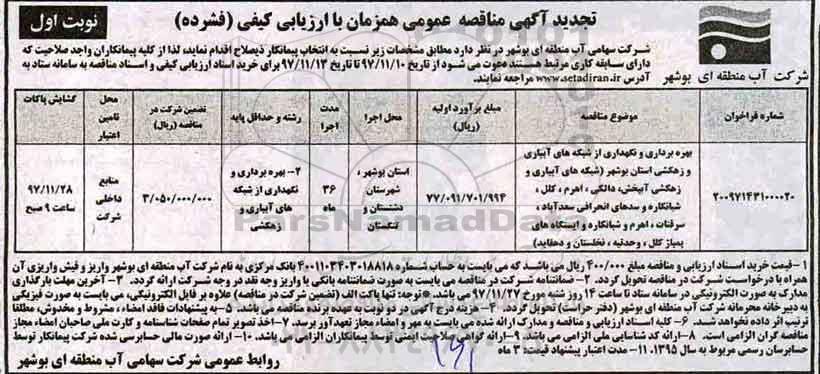 تجدید آگهی مناقصه عمومی همزمان با ارزیابی کیفی (فشرده)
نوبت اول
شرکت آب منطقه ای بوشهر
شرکت سهامی آب منطقه ای بوشهر در نظر دارد مطابق مشخصات زیر نسبت به انتخاب پیمانکار ذیصلاح اقدام نماید، لذا از کلیه پیمانکاران واجد صلاحیت که
دارای سابقه کاری مرتبط هستند دعوت می شود از تاریخ ۹۷/۱۱/۱۰ تا تاریخ ۹۷/۱۱/۱۳ برای خرید اسناد ارزیابی کیفی و اسناد مناقصه به سامانه ستاد به
آدرس www.setadiran.ir مراجعه نمایند.
شماره فراخوان
موضوع مناقصه
مبلغ برآورد اولیه (ریال)
محل اجرا
مدت اجرا
رشته و حداقل پایه
تضمین شرکت در مناقصه (ریال)
محل تامین اعتبار
گشایش پاکات
۲۰۰۹۷۱۴۳۱۰۰۰۰۲۰
بهره برداری و نگهداری از شبکه های آبیاری
و زهکشی استان بوشهر (شبکه های آبیاری و
زهکشی آبپخش، دالکی ، اهرم ، کلل ،
شبانکاره و سدهای انحرافی سعدآباد ،
سرقنات ، اهرم و شبانکاره و ایستگاه های
پمپاژ کلل ، وحدتیه ، نخلستان و دهقاید)
۷۷/۰۹۱/۷۰۱/۹۹۴
استان بوشهر ،
شهرستان
دشتستان و
تنگستان
۳۶
ماه
۲- بهره برداری و
نگهداری از شبکه
های آبیاری و
زهکشی
۳/۰۵۰/۰۰۰/۰۰۰
منابع
داخلی
شرکت
۹۷/۱۱/۲۸
ساعت ۹ صبح
۱- قیمت خرید اسناد ارزیابی و مناقصه مبلغ ۴۰۰/۰۰۰ ریال می باشد که می بایست به حساب شماره ۴۰۰۱۱۰۳۴۰۳۰۱۸۸۱۸ بانک مرکزی به نام شرکت آب منطقه ای بوشهر واریز و فیش واریزی آن
همراه با درخواست شرکت در مناقصه تحویل گردد. ۲- ضمانتنامه شرکت در مناقصه می بایست به صورت ضمانتنامه بانکی یا واریز وجه نقد در وجه شرکت باشد. ۳- آخرین مهلت بارگذاری
مدارک به صورت الکترونیکی در سامانه ستاد تا ساعت ۱۴ روز شنبه مورخ ۹۷/۱۱/۲۷ می باشد. توجه: تنها پاکت الف (تضمین شرکت در مناقصه) علاوه بر فایل الکترونیکی، می بایست به صورت فیزیکی
به دبیرخانه محرمانه شرکت آب منطقه ای بوشهر (دفتر حراست) تحویل گردد. ۴- هزینه درج آگهی در دو نوبت به عهده برنده مناقصه می باشد. ۵- به پیشنهادات فاقد امضاء، مشروط و مخدوش، مطلقا
ترتیب اثر داده نخواهد شد. ۶- کلیه اسناد ارزیابی و مناقصه و مدارک ارائه شده می بایست به مهر و امضاء مجاز تعهدآور برسد. ۷- اخذ تصویر تمام صفحات شناسنامه و کارت ملی صاحبان امضاء مجاز
مناقصه گران الزامی است. ۸- ارائه کد شناسایی ملی الزامی می باشد. ۹- ارائه گواهی صلاحیت ایمنی توسط پیمانکاران الزامی می باشد. ۱۰- ارائه صورت مالی حسابرسی شده شرکت پیمانکار توسط
حسابرسان رسمی مربوط به سال ۱۳۹۵. ۱۱- مدت اعتبار پیشنهاد قیمت: ۳ ماه
روابط عمومی شرکت سهامی آب منطقه ای بوشهر
ParsNamadData